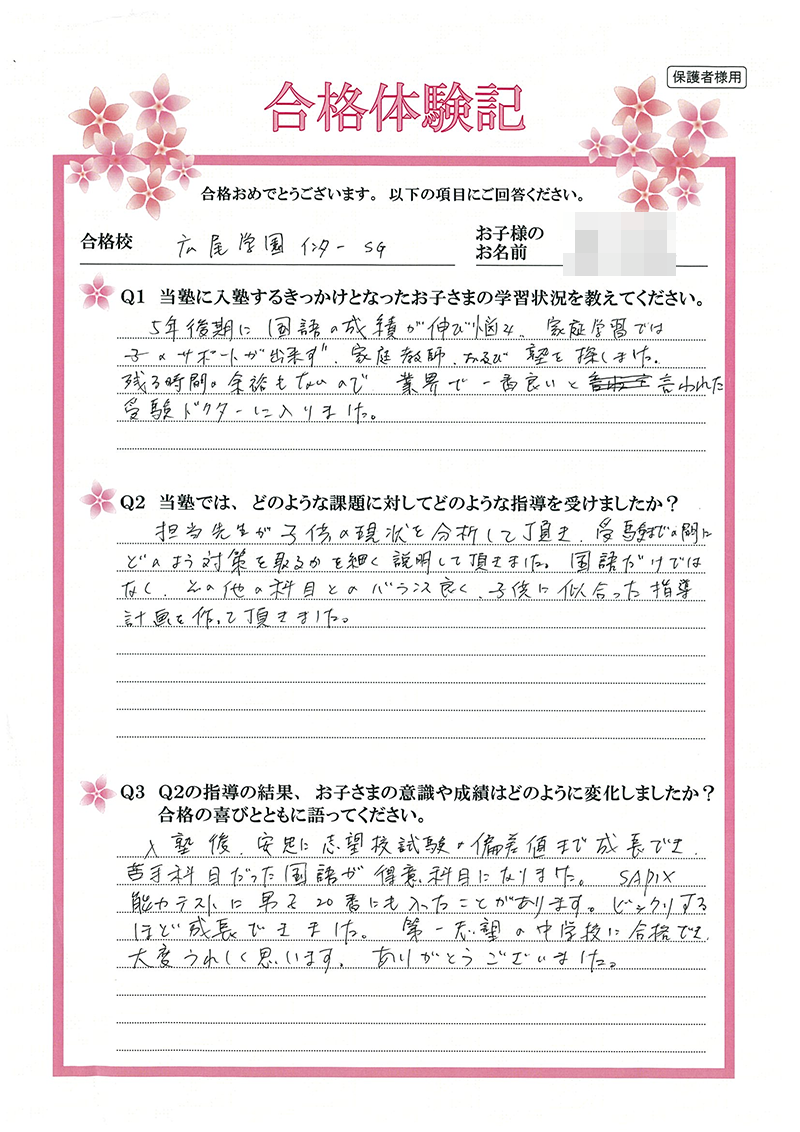 保護者様用
合格体験記
合格おめでとうございます。以下の項目にご回答ください。
合格校 広尾学園 インター SG
お子様の
お名前
Q1 当塾に入塾するきっかけとなったお子さまの学習状況を教えてください。
5年後期に国語の成績が伸び悩み、家庭学習では
子のサポートが出来ず、家庭教師、および塾を探しました。
残る時間の余裕もないので、業界で一番良いと言われた
受験ドクターに入りました。
Q2 当塾では、どのような課題に対してどのような指導を受けましたか？
担当先生が子供の現状を分析して頂き、受験までの間に
どのよう対策を取るかを細く説明して頂きました。国語だけでは
なく、その他の科目とのバランス良く、子供に似合った指導
計画を作って頂きました。
Q3 Q2の指導の結果、お子さまの意識や成績はどのように変化しましたか？
合格の喜びとともに語ってください。
入塾後、安定に志望校試験の偏差値まで成長でき、
苦手科目だった国語が得意科目になりました。 SAPIX
能力テストに男子20番にも入ったことがあります。ビックリする
ほど成長できました。 第一志望の中学校に合格でき、
大変うれしく思います。 ありがとうございました。